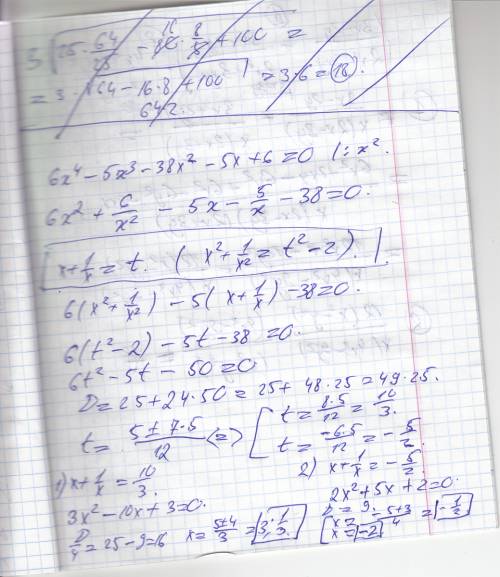 3 √25 · 64/25 − 80 · 8/5 + 100 =
= 3 √64 − 16·8 + 100 = 3·6 = 18.
6x⁴ − 5x³ − 38x² − 5x + 6 = 0 | : x².
6x² + 6/x² − 5x − 5/x − 38 = 0.
x + 1/x = t. (x² + 1/x² = t² − 2).
6(x² + 1/x²) − 5(x + 1/x) − 38 = 0.
6(t² − 2) − 5t − 38 = 0.
6t² − 5t − 50 = 0
D = 25 + 24·50 = 25 + 48·25 = 49·25.
t = (5 ± 7·5)/12 <=> [ t = 8·5/12 = 10/3.
t = −6·5/12 = −5/2.
1) x + 1/x = 10/3.
2) x + 1/x = −5/2.
3x² − 10x + 3 = 0.
2x² + 5x + 2 = 0.
D/4 = 25 − 9 = 16 x = (5 ± 4)/3 = 3; 1/3.
D = 9.
[ x = (−5 + 3)/4 = −1/2
x = −2